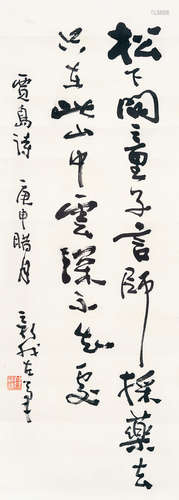 松下問童子言師採藥去
只在此山中雲深不知處
賈島詩 庚申腊月
新我左筆